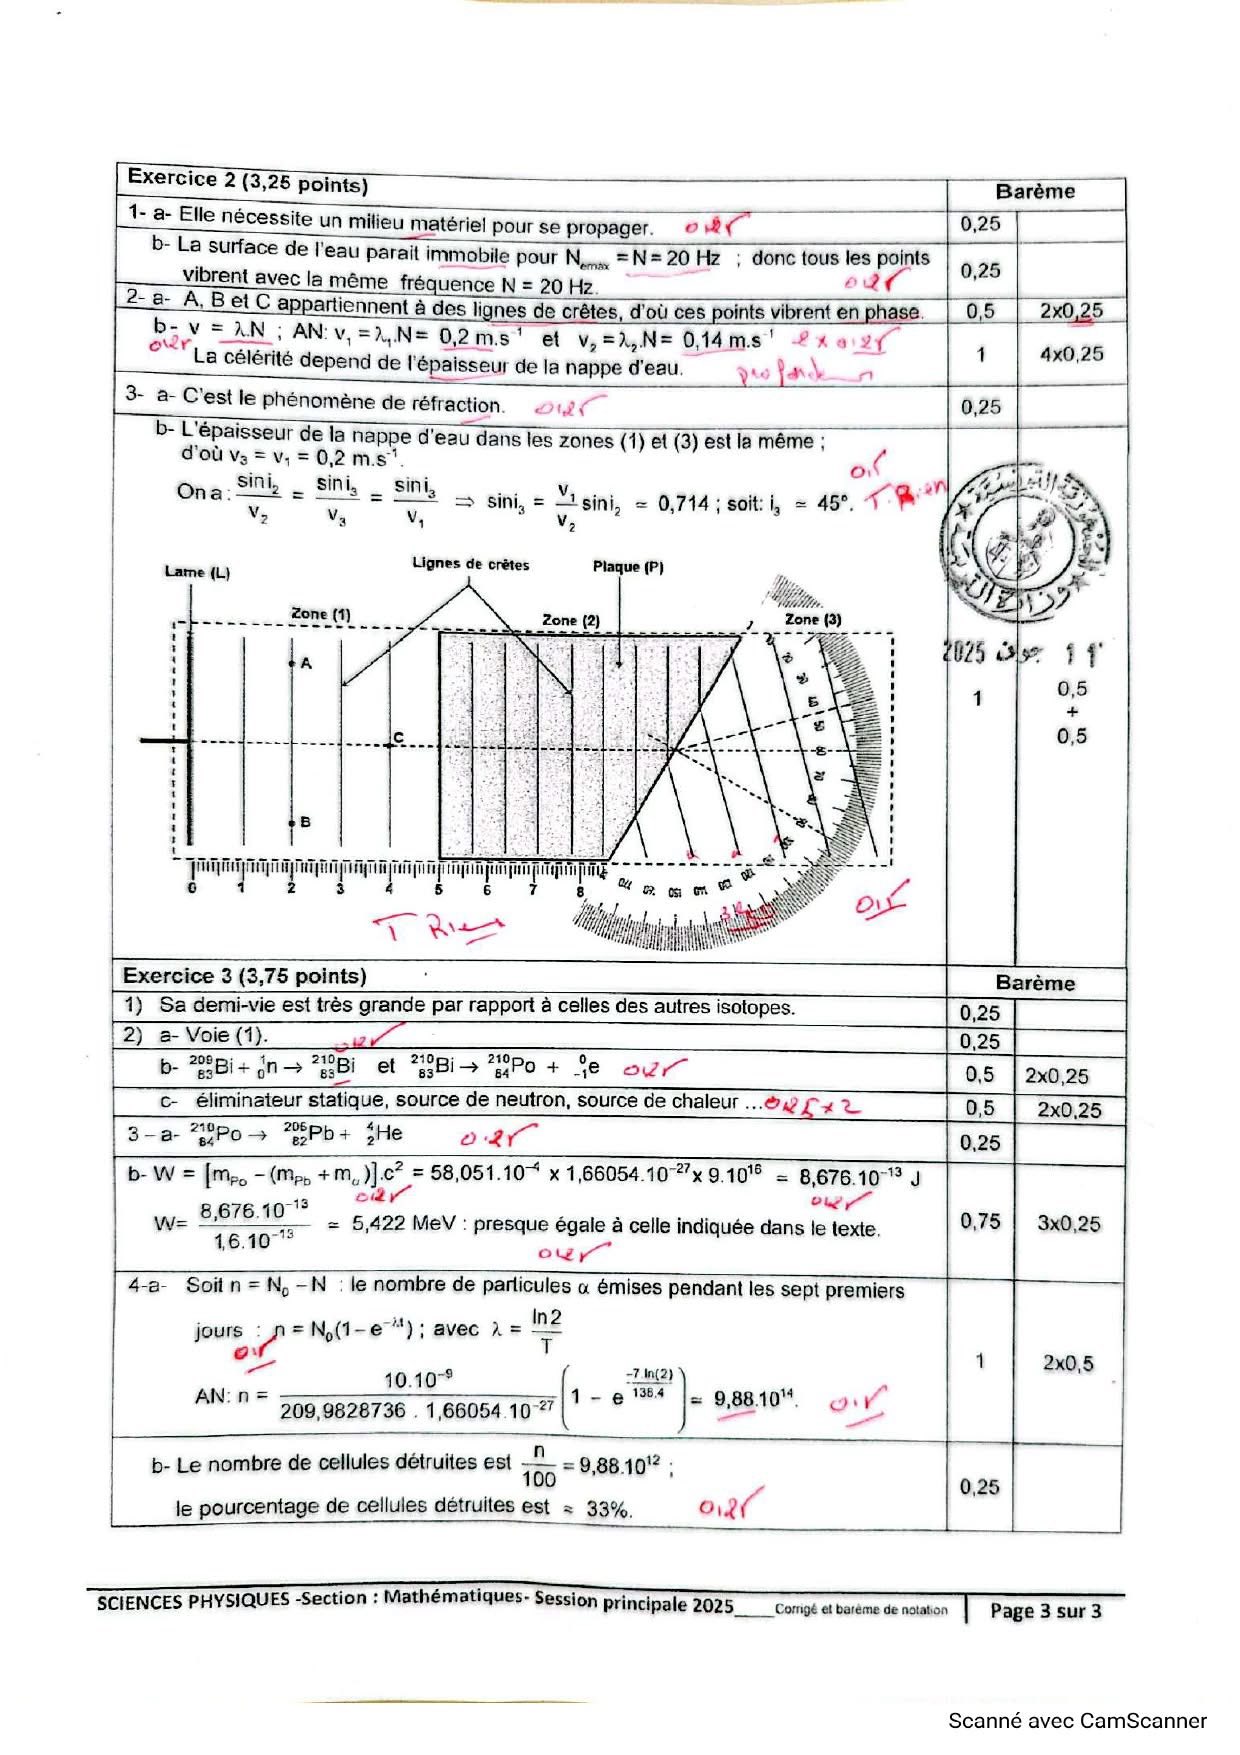 Exercice 2 (3,25 points)
Barème
1- a- Elle nécessite un milieu matériel pour se propager. 0,25
0,25
b- La surface de l'eau parait immobile pour Nemax = N = 20 Hz ; donc tous les points
vibrent avec la même fréquence N = 20 Hz. 0,25
0,25
2- a- A, B et C appartiennent à des lignes de crêtes, d'où ces points vibrent en phase.
0,5 2x0,25
b- v = λ.N ; AN: v₁ = λ₁.N = 0,2 m.s⁻¹ et v₂ = λ₂.N = 0,14 m.s⁻¹ 2 x 0,25
0,25
La célérité depend de l'épaisseur de la nappe d'eau.
1 4x0,25
3- a- C'est le phénomène de réfraction. 0,25
0,25
b- L'épaisseur de la nappe d'eau dans les zones (1) et (3) est la même ;
d'où v₃ = v₁ = 0,2 m.s⁻¹.
0,5
On a : sin i₂ / v₂ = sin i₃ / v₃ = sin i₃ / v₁ ⇒ sin i₃ = v₁/v₂ sin i₂ ≃ 0,714 ; soit: i₃ ≃ 45°. T. Rien
Lame (L)
Lignes de crêtes
Plaque (P)
Zone (1)
Zone (2)
Zone (3)
A
C
B
0 1 2 3 4 5 6 7 8
11 جوان 2025
1 0,5
+
0,5
T Rien
0,5
Exercice 3 (3,75 points)
Barème
1) Sa demi-vie est très grande par rapport à celles des autres isotopes.
0,25
2) a- Voie (1). 0,25
0,25
b- ²⁰⁹₈₃Bi + ¹₀n → ²¹⁰₈₃Bi et ²¹⁰₈₃Bi → ²¹⁰₈₄Po + ⁰₋₁e 0,25
0,5 2x0,25
c- éliminateur statique, source de neutron, source de chaleur ... 0,25 x 2
0,5 2x0,25
3 – a- ²¹⁰₈₄Po → ²⁰⁶₈₂Pb + ⁴₂He 0.25
0,25
b- W = [mPo – (mPb + mα)].c² = 58,051.10⁻⁴ x 1,66054.10⁻²⁷ x 9.10¹⁶ = 8,676.10⁻¹³ J
0,25 0,25
W = 8,676.10⁻¹³ / 1,6.10⁻¹³ ≃ 5,422 MeV : presque égale à celle indiquée dans le texte.
0,25
0,75 3x0,25
4-a- Soit n = N₀ – N : le nombre de particules α émises pendant les sept premiers
jours : n = N₀(1 – e^(-λt)) ; avec λ = ln2 / T
0,5
AN: n = 10.10⁻⁹ / 209,9828736 . 1,66054.10⁻²⁷ (1 – e^(-7.ln(2)/138,4)) = 9,88.10¹⁴. 0,5
1 2x0,5
b- Le nombre de cellules détruites est n/100 = 9,88.10¹² ;
le pourcentage de cellules détruites est ≃ 33%. 0,25
0,25
SCIENCES PHYSIQUES -Section : Mathématiques- Session principale 2025____Corrigé et barème de notation
Page 3 sur 3
Scanné avec CamScanner